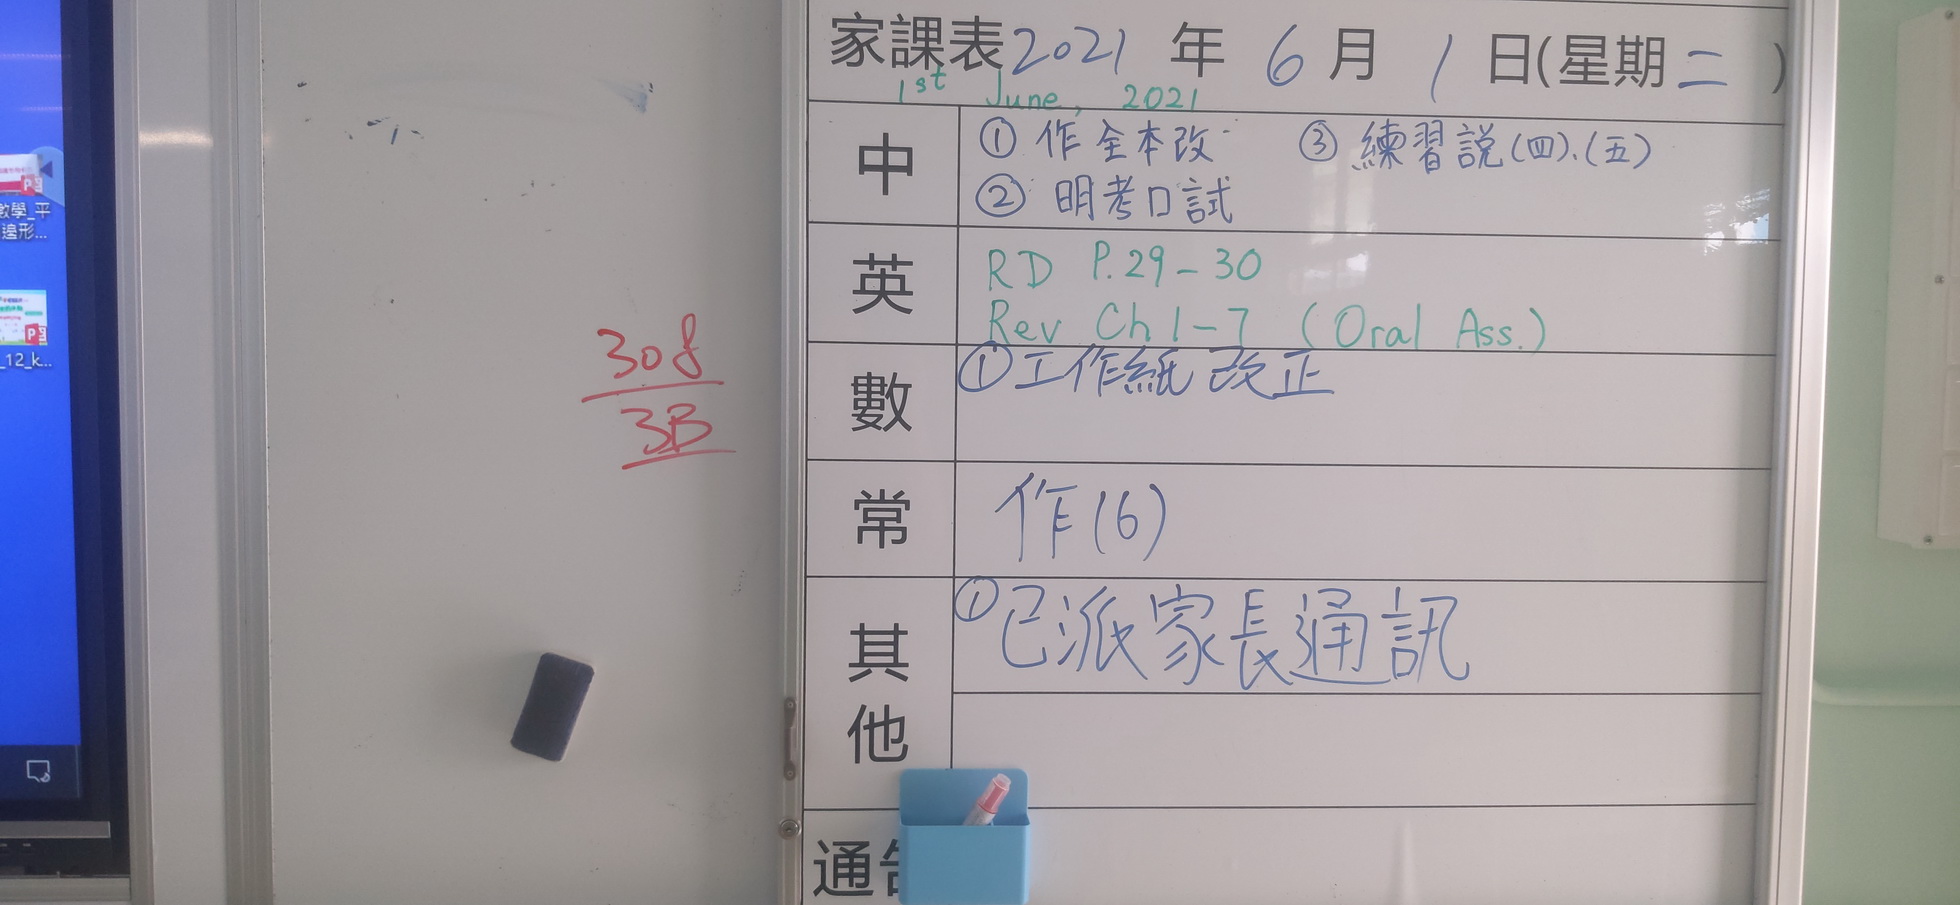 數學_平
邊形...
_12_k...
308
3B
家課表2021年6月1日(星期二)
1st June, 2021
中
① 作全本改 ③ 練習説(四)、(五)
② 明考口試
英
RD P.29-30
Rev Ch 1-7 (Oral Ass.)
數
①工作紙改正
常
作(6)
其他
①已派家長通訊
通告